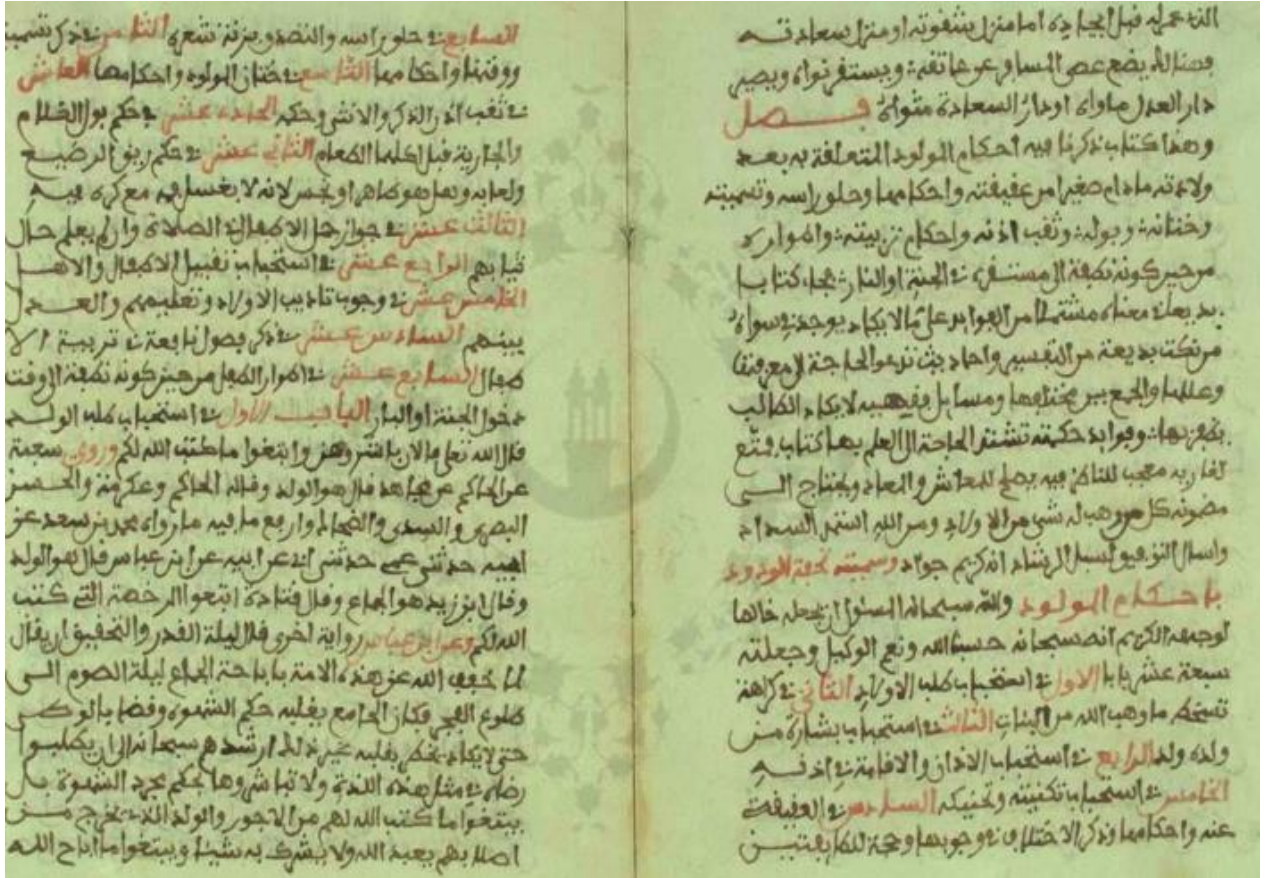 الذي عمر له قبل ايجاده اما منزل شقوته او منزل سعادته
فهنالك يضع عصى المسافر عن عاتقه ويستقر نواه ويصير
دار العدل ماواه او دار السعادة مثواه فصل
وهذا كتاب ذكرنا فيه احكام المولود المتعلقة به بعد
ولادته مادام صغيرا من عقيقته واحكامها وحلق راسه وتسميته
وختانه وبوله وثقب اذنه واحكام تربيته واطواره
من حين كونه نطفة الى مستقره في الجنة او النار فجاء كتابا
بديعا في معناه مشتملا من الفوايد على ما لا يكاد يوجد في سواه
من نكت بديعة من التفسير واحاديث تدعو الحاجة الى معرفتها
وعللها والجمع بين مختلفها ومسايل فقهية لا يكاد الطالب
يظفر بها وفوايد حكمية تشتد الحاجة الى العلم بها كتاب ممتع
لقاريه معجب للناظر فيه يصلح للمعاش والمعاد ويحتاج الى
مضمونه كل من وهب له شي من الاولاد ومن الله استمد السداد
واسال التوفيق لسبل الرشاد انه كريم جواد وسميته تحفة الودود
باحكام المولود والله سبحانه المسئول ان يجعله خالصا
لوجهه الكريم انه سبحانه حسبنا الله ونعم الوكيل وجعلته
سبعة عشر بابا الاول في استحباب طلب الاولاد الثاني في كراهة
تسخط ما وهب الله من البنات الثالث في استحباب بشارة من
ولد له ولد الرابع في استحباب الاذان والاقامة في اذنه
الخامس في استحباب تحنيكه السادس في العقيقة
عنه واحكامها وذكر الاختلاف في وجوبها وحجة الطايفتين
السابع في حلق راسه والتصدق بزنة شعره الثامن في ذكر تسميته
ووقتها واحكامها التاسع في ختان المولود واحكامها العاشر
في ثقب اذن الذكر والانثى وحكمه الحادي عشر في حكم بول الغلام
والجارية قبل اكلهما الطعام الثاني عشر في حكم ريق الرضيع
ولعابه وهل هو طاهر او نجس لانه لا يغسل فمه مع كثرة قيه
الثالث عشر في جواز حمل الاطفال في الصلاة وان لم يعلم حال
ثيابهم الرابع عشر في استحباب تقبيل الاطفال والاهل
الخامس عشر في وجوب تاديب الاولاد وتعليمهم والعدل
بينهم السادس عشر في ذكر فصول نافعة في تربية الا
طفال السابع عشر في اطوار الطفل من حين كونه نطفة الى وقت
دخول الجنة او النار الباب الاول في استحباب طلب الولد
قال الله تعلى فالان باشروهن وابتغوا ما كتب الله لكم وروى شعبة
عن الحاكم عن مجاهد قال هو الولد وقاله الحاكم وعكرمة والحسن
البصري والسدي والضحاك وارفع ما فيه ما رواه محمد بن سعد عن
ابيه حدثني عمي حدثني ابي عن ابيه عن ابن عباس قال هو الولد
وقال ابن زيد هو الجماع وقال قتادة ابتغوا الرخصة التي كتب
الله لكم وعن ابن عباس رواية اخرى قال ليلة القدر والتحقيق ان يقال
لما خفف الله عن هذه الامة باباحة الجماع ليلة الصوم الى
طلوع الفجر وكان المجامع يغلبه حكم الشهوة وقضا الوطر
حتى لا يكاد يخطر بقلبه غير ذلك ارشدهم سبحانه الى ان يطلبوا
رضاه في مثل هذه اللذة ولا تباشروها بحكم مجرد الشهوة بل
يبتغوا ما كتب الله لهم من الاجور والولد الذي يخرج من
اصلابهم يعبد الله ولا يشرك به شيئا ويبتغوا ما اباح الله